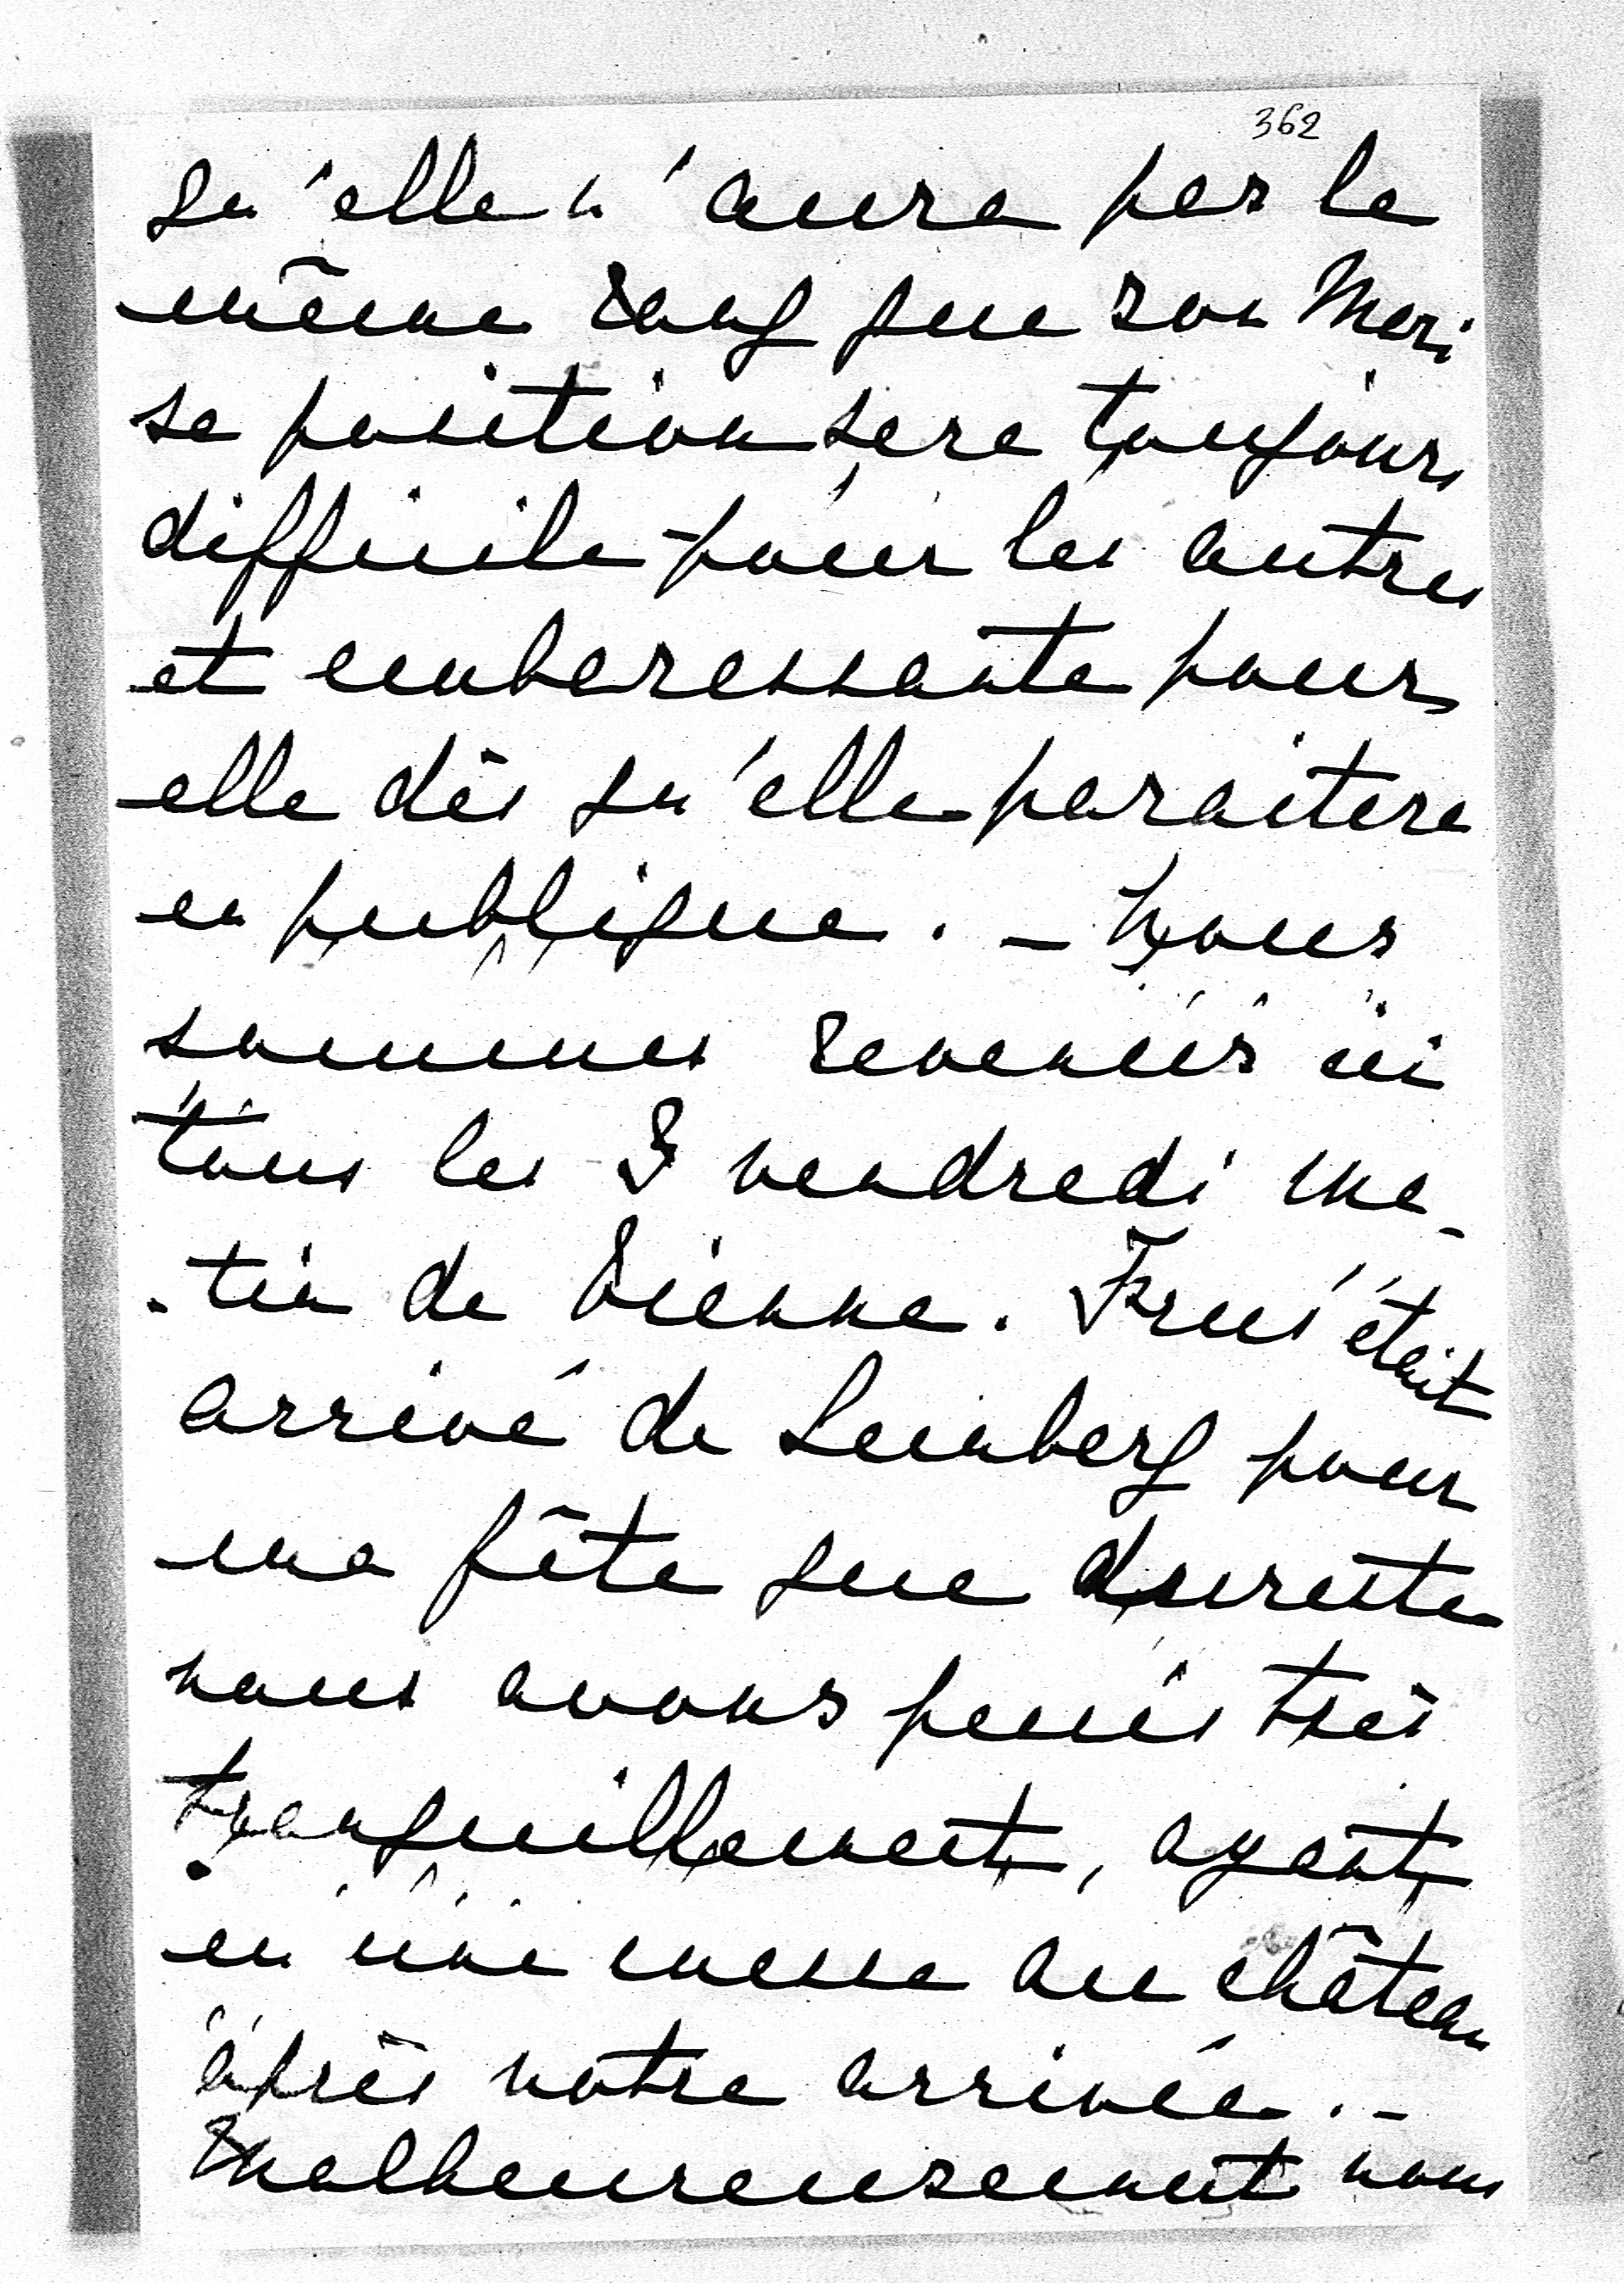 362
qu'elle n'aura pas le
même rang que son Mari
sa position sera toujours
difficile pour les autres
et embarassante pour
elle dès qu'elle paraitera
en publique. — Nous
sommes revenus ici
tous les 3 vendredi ma-
-tin de Vienne. était
arrivé de Lemberg pour
ma fête que
nous avons très
tranquillement, ayant
eu une messe au château
après notre arrivée. —
Malheureusement nous